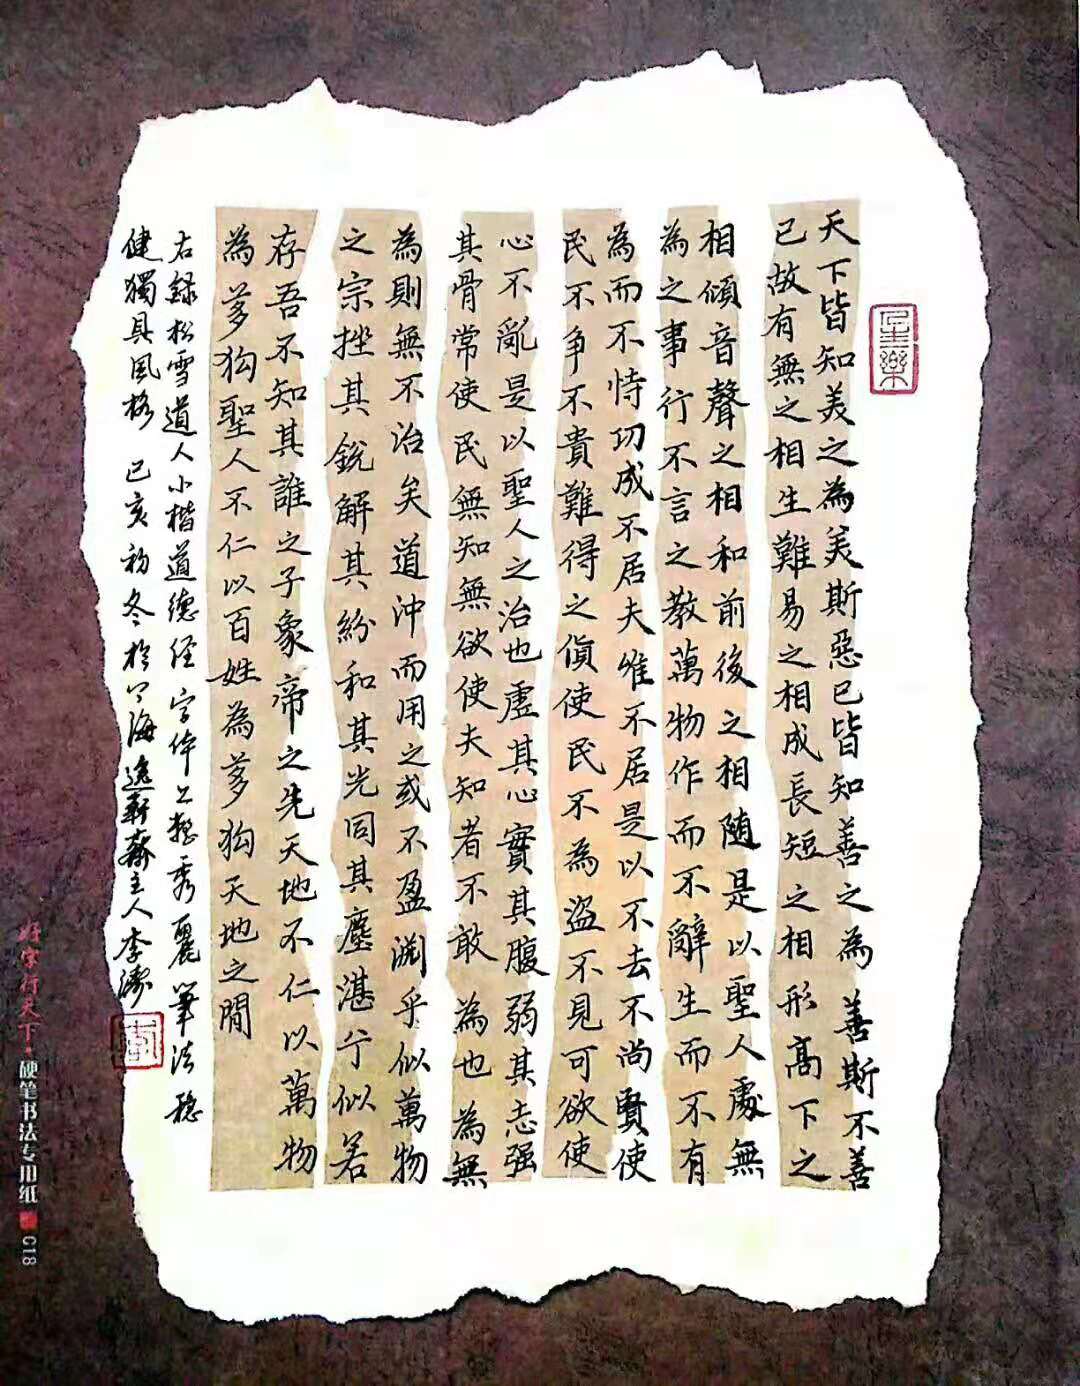 天下皆知美之為美斯惡已皆知善之為善斯不善
已故有無之相生難易之相成長短之相形高下之
相傾音聲之相和前後之相随是以聖人處無
為之事行不言之教萬物作而不辭生而不有
為而不恃功成不居夫唯不居是以不去不尚賢使
民不争不貴難得之貨使民不為盜不見可欲使
心不亂是以聖人之治也虛其心實其腹弱其志强
其骨常使民無知無欲使夫知者不敢為也為無
為則無不治矣道沖而用之或不盈淵乎似萬物
之宗挫其銳解其紛和其光同其塵湛兮似若
存吾不知其誰之子象帝之先天地不仁以萬物
為芻狗聖人不仁以百姓為芻狗天地之間
右録松雪道人小楷道德经字体工整秀麗筆法稳
健獨具風格 己亥初冬於海逸軒齋主人李
好字行天下 硬笔书法专用纸 C18